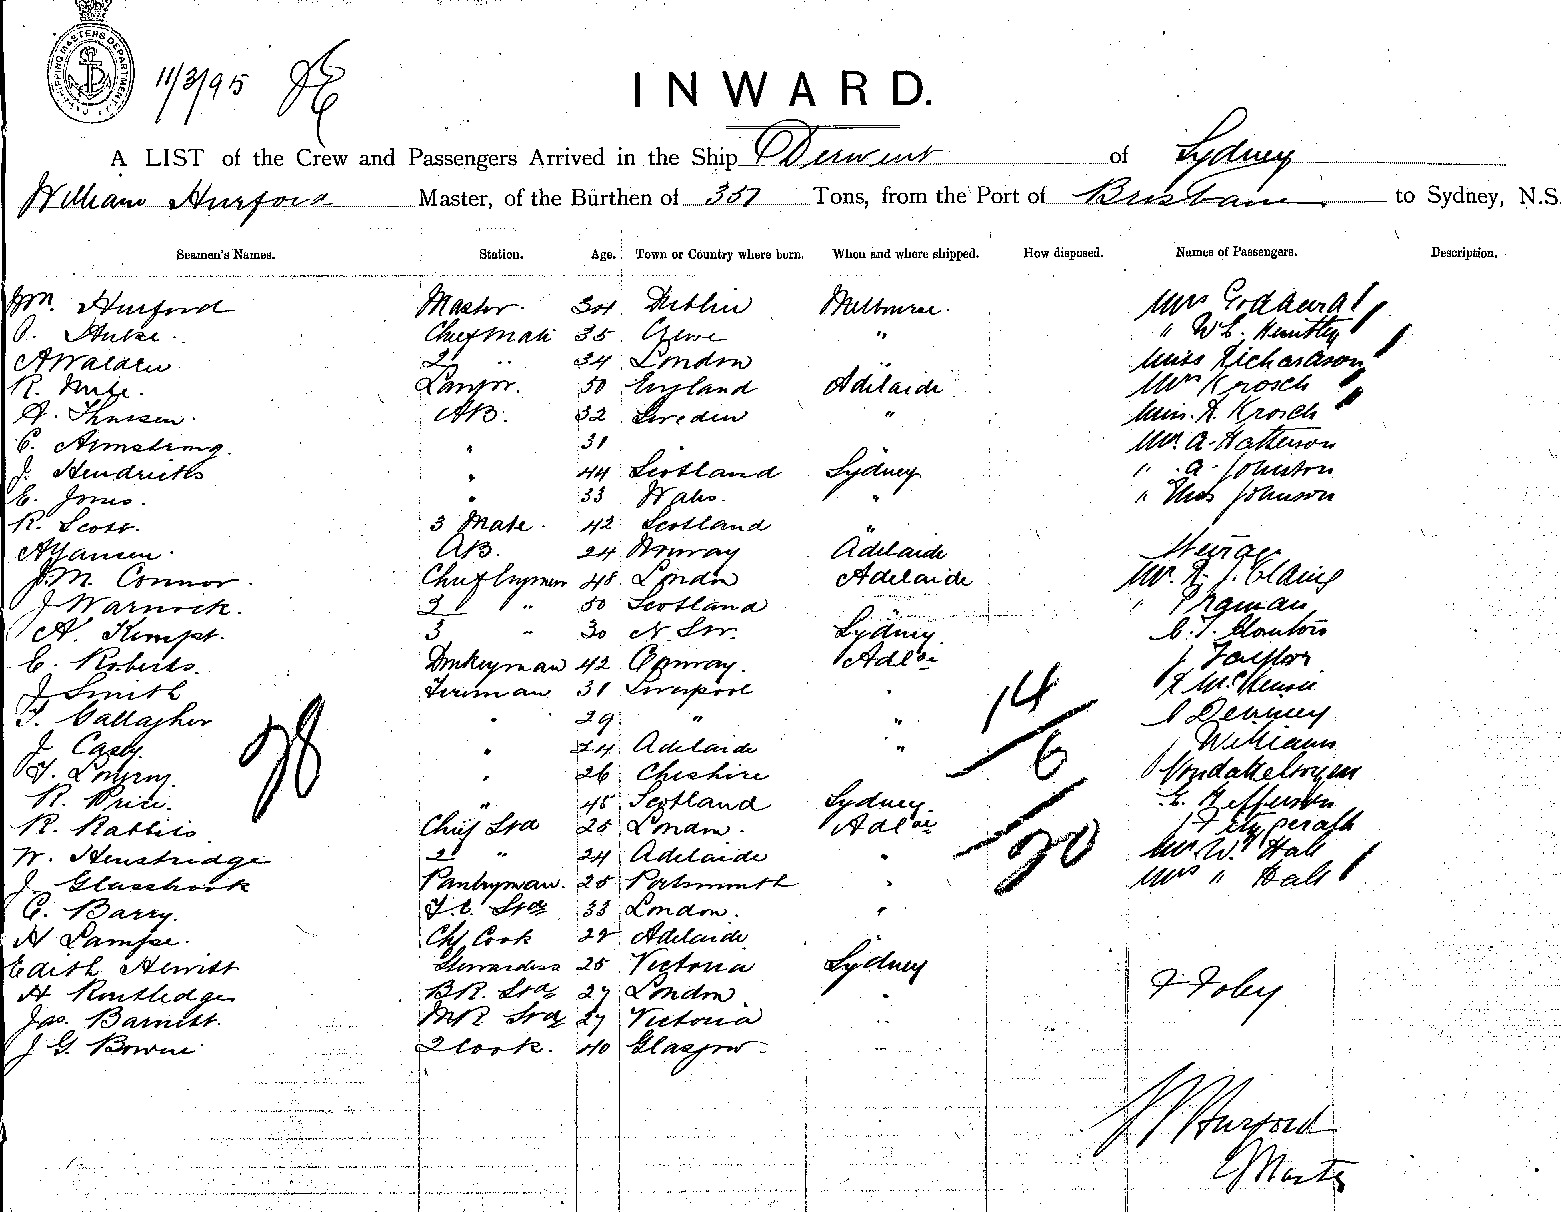 SHIPPING MASTERS DEPARTMENT
11/3/95
INWARD.
A LIST of the Crew and Passengers Arrived in the Ship Derwent of Sydney
William Hurford Master, of the Burthen of 357 Tons, from the Port of Brisbane to Sydney, N.S.
Seamen's Names. Station. Age. Town or Country where born. When and where shipped. How disposed. Names of Passengers. Description.
Wm. Hurford Master 34 Dublin Melbourne. Mrs Goddard
Chief Mate 35 Crewe " " W E Huntley
A Walden 2 " 34 London " Miss Richardson
R. Lamptr. 50 England Adelaide Mrs Krosch
A. AB. 32 Sweden " Miss A. Krosch
C. Armstrong. " 31 Mr. A. Patterson
J. Hendricks " 44 Scotland Sydney " A. Johnston
E. Jones. " 33 Wales. " " Thos Johnson
R. Scott. 3 Mate. 42 Scotland "
A Jansen. AB. 24 Norway Adelaide
J. M. Connor. Chief Engineer 48 London Adelaide Mr.
J Warnock. 2 " 50 Scotland "
A. Kempt. 3 " 30 N S W. Sydney.
E. Roberts. Donkeyman 42 Conway. Adlai J Taylor
J Smith Fireman 31 Liverpool "
F. Gallagher " 29 " "
J. Casey. " 24 Adelaide " Williams
" 26 Cheshire
R. Price. " 45 Scotland Sydney. E. Jefferson
R. Rabbits Chief Std 25 London. Adlai J Fitzgerald
W. Henstridge 2 " 24 Adelaide " Mr. W. Hall
J. Glassbrook Pantryman. 25 Portsmouth " Mrs " Hall
C. Barry. F.C. Std 33 London. "
H Lampe. Chf Cook 28 Adelaide
Edith Hewitt Stewardess 25 Victoria Sydney
H. Routledge BR. Std 27 London. " F Foley
Jas. Barnett. MR Std 27 Victoria "
J G. Bowne 2 Cook. 40 Glasgow. "
28
14
6
20
W Hurford
Master